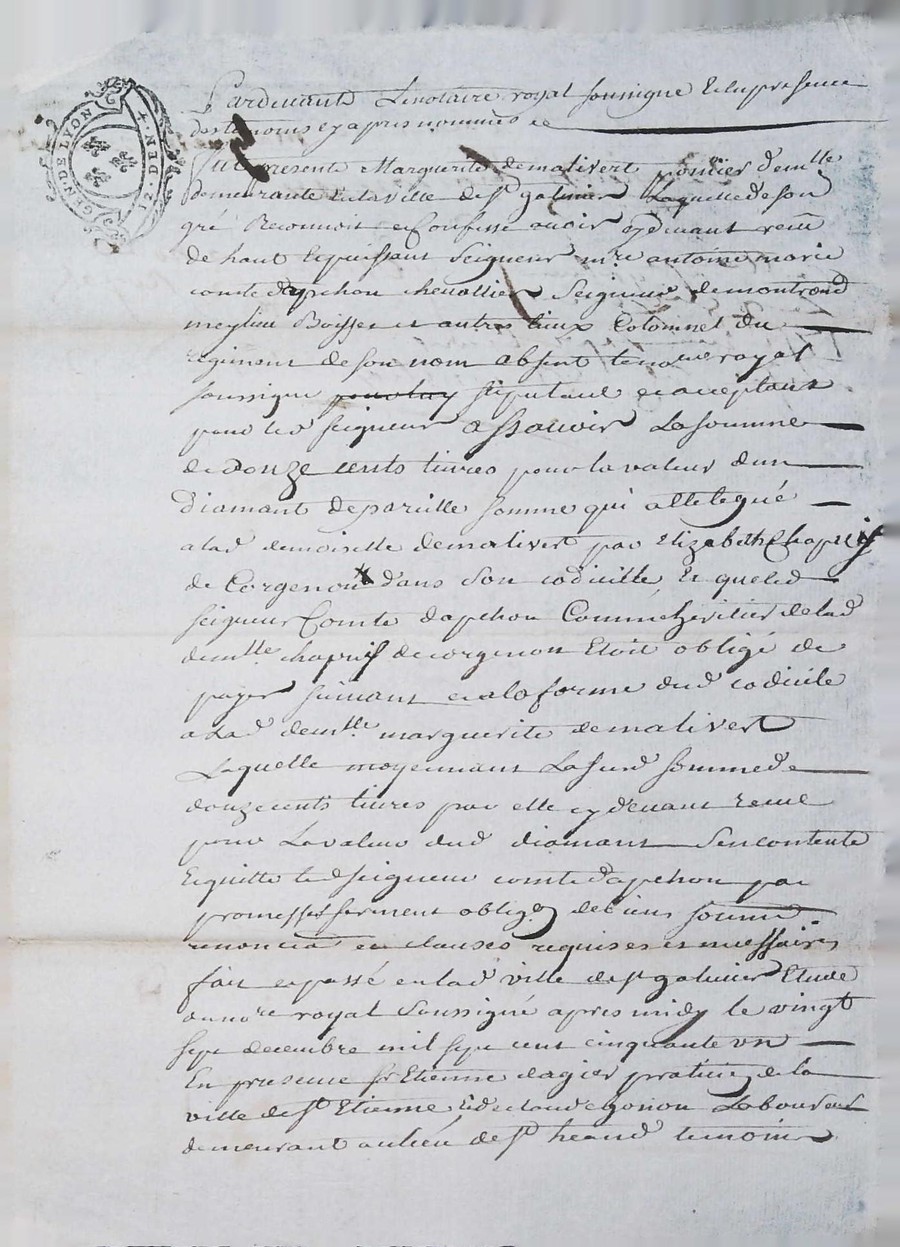 GEN. DE LYON + 2 DEN.
Pardevant Le notaire royal soussigné Et en presence
des temoins cy apres nommés
fut presente Marguerite demalivert demelle
demeurante En la ville de st galmier Laquelle de son
gré Reconnoit et Confesse avoir cy devant reçu
de haut Et puissant Seigneur mre antoine marie
comte dapchon chevallier Seigneur de montrond
meylieu Boisset et autres lieux Colonnel du
regiment de son nom absent le no re royal
soussigné pour luy stipulant et acceptant
pour led seigneur assavoir La somme
de douze cents livres pour la valeur dun
Diamant de pareille somme qui a ete legué
a lad demoiselle demalivert par Elizabeth Chapuis
de Corgenon dans Son codicille, Et que led
seigneur Comte dapchon Comme heritier de lad
demlle chapuis de corgenon Etoit obligé de
payer suivant et a la forme dud codicile
a Lad demlle marguerite demalivert
Laquelle moyennant La susd somme de
douze cents livres par elle cy devant reçue
pour La valeur dud diamant Sen contente
Et quitte led seigneur comte dapchon par
promesse serment oblig on de biens soumis
renoncia on et clauses requises et necessaires
fait et passé en lad ville de st galmier Etude
du no re royal Soussigné apres midy le vingt
sept decembre mil sept cent cinquante un
En presence sr Etienne dagier praticien de la
ville de st Etienne Et de claude gonon Laboureur
demeurant au lieu de st heand temoins